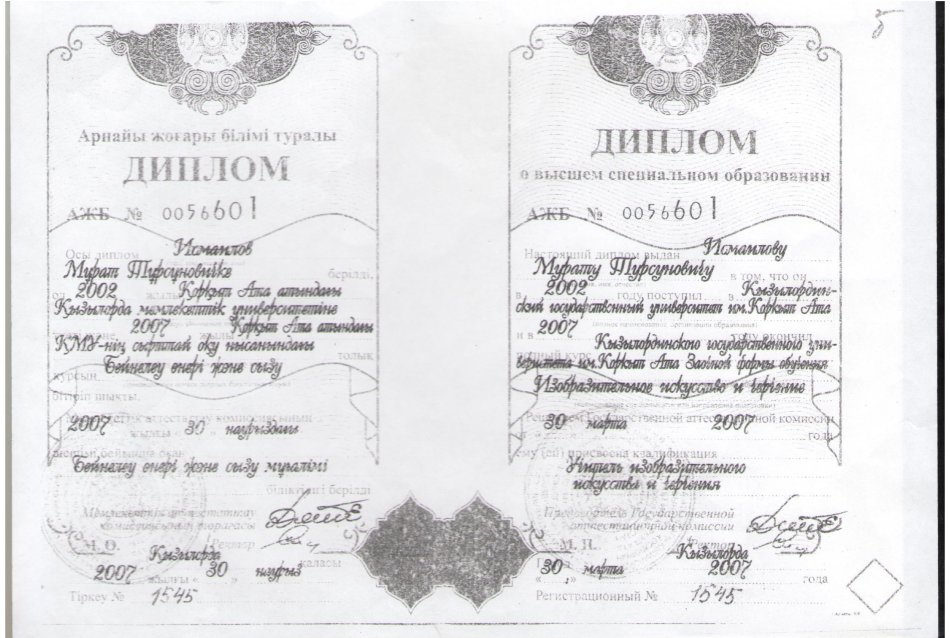 Арнайы жоғары білімі туралы
ДИПЛОМ
АЖБ № 0056601
Осы диплом Исмаилов
Мурат Турсуновичке берілді,
2002 жылы Қорқыт Ата атындағы
Қызылорда мемлекеттік университетіне
2007 жылы Қорқыт Ата атындағы
ҚМУ-нің сырттай оқу нысанындағы
толық
Бейнелеу өнері және сызу
курсын
бітіріп шықты.
Мемлекеттік аттестаттау комиссиясының
2007 жылғы « 30 наурыздағы
шешімі бойынша оған
Бейнелеу өнері және сызу мұғалімі
біліктілігі берілді
Мемлекеттік аттестаттау
комиссиясының төрағасы
М. О. Ректор
Қызылорда қаласы
2007 жылғы « 30 » наурыз
Тіркеу № 1545
ДИПЛОМ
о высшем специальном образовании
АЖБ № 0056601
Настоящий диплом выдан Исмаилову
Мурату Турсуновичу в том, что он
в 2002 году поступил в Кызылордин-
ский государственный университет им.Коркыт Ата
и в 2007 году окончил
полный курс Кызылординского государственного уни-
верситета им.Коркыт Ата Заочной формы обучения
Изобразительное искусство и черчение
Решением Государственной аттестационной комиссии
от « 30 марта 2007 года
ему (ей) присвоена квалификация
Учитель изобразительного
искусства и черчения
Председатель Государственной
аттестационной комиссии
Ректор
М. П. Кызылорда
« 30 марта 2007 года
Регистрационный № 1545